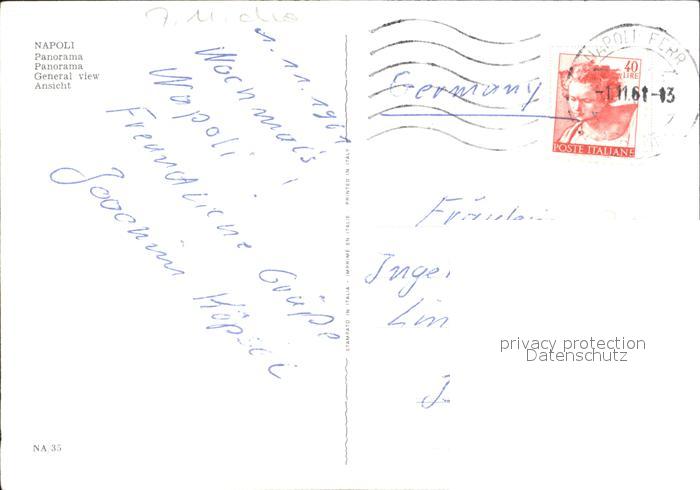 NAPOLI
Panorama
Panorama
General view
Ansicht
1.11.1961
Nochmals
Napoli!
Freundliche Grüße
Joachim
NA 35
STAMPATO IN ITALIA - IMPRIMÉ EN ITALIE PRINTED IN ITALY
NAPOLI FERR
-1.11.61-13
40
LIRE
POSTE ITALIANE
Germany
Fräulein
Inge
Lin
privacy protection
Datenschutz